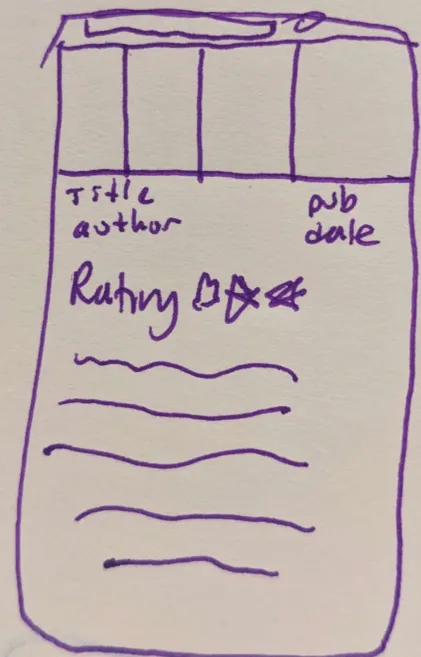 Title
author
pub
date
Rating